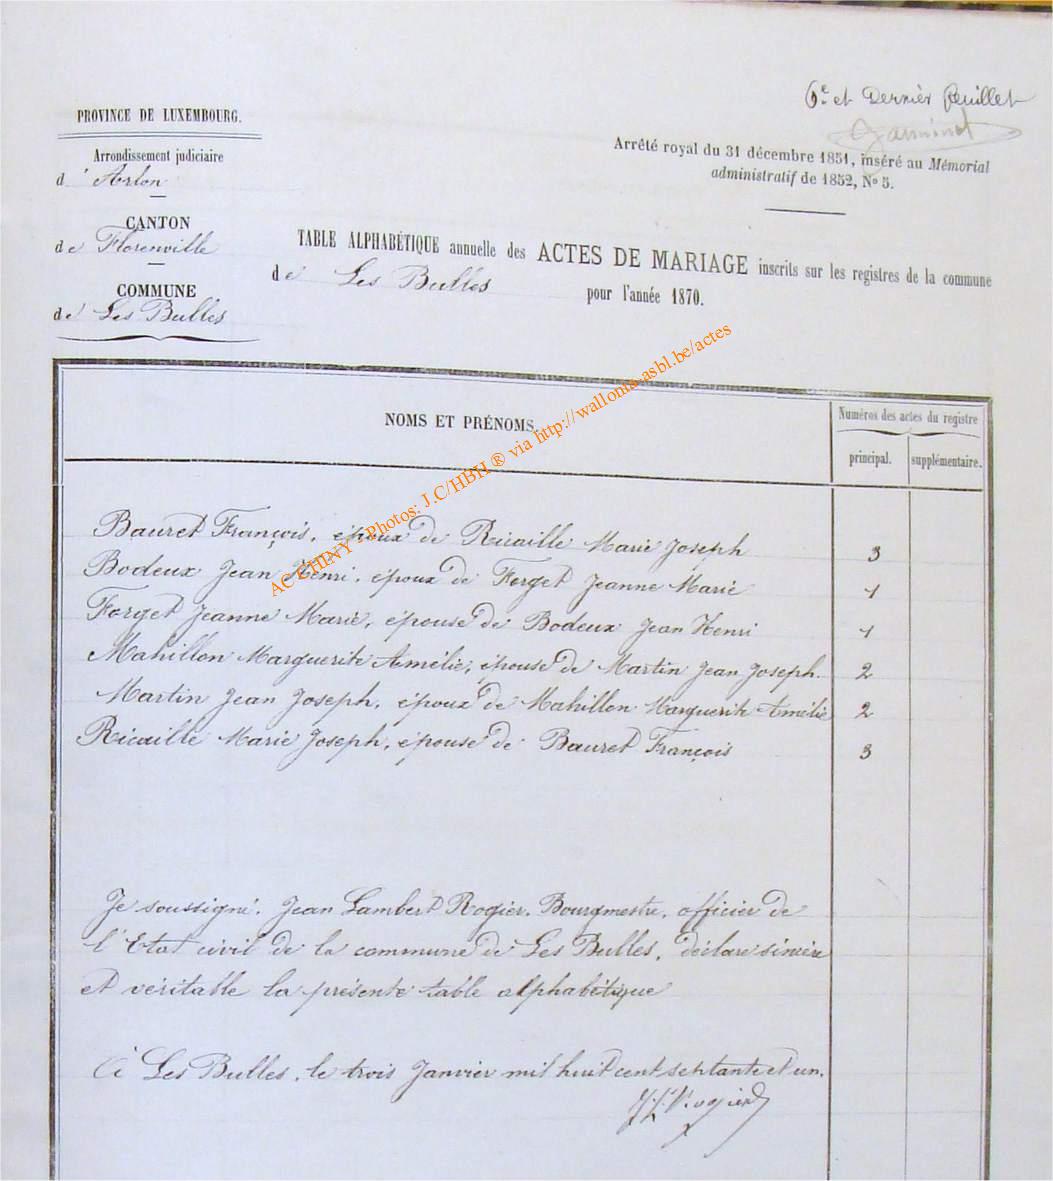 6e et Dernier feuillet
PROVINCE DE LUXEMBOURG.
Arrondissement judiciaire
d' Arlon
CANTON
de Florenville
COMMUNE
de Les Bulles
Arrêté royal du 31 décembre 1851, inséré au Mémorial
administratif de 1852, No 5.
TABLE ALPHABÉTIQUE annuelle des ACTES DE MARIAGE inscrits sur les registres de la commune
de Les Bulles pour l'année 1870.
NOMS ET PRÉNOMS.
Numéros des actes du registre
principal. supplémentaire.
AC CHINY - Photos: J.C/HBH ® via http://wallonia-asbl.be/actes
Bauret François, époux de Ricaille Marie Joseph 3
Bodeux Jean Henri, époux de Forget Jeanne Marie 1
Forget Jeanne Marie, épouse de Bodeux Jean Henri 1
Mahillon Marguerite Amélie, épouse de Martin Jean Joseph. 2
Martin Jean Joseph, époux de Mahillon Marguerite Amélie 2
Ricaille Marie Joseph, épouse de Bauret François 3
Je soussigné, Jean Lambert Rogier, Bourgmestre, officier de
l'Etat civil de la commune de Les Bulles, déclare sincère
et véritable la présente table alphabétique
à Les Bulles, le trois Janvier mil huit cent septante et un.
J. L. Rogier